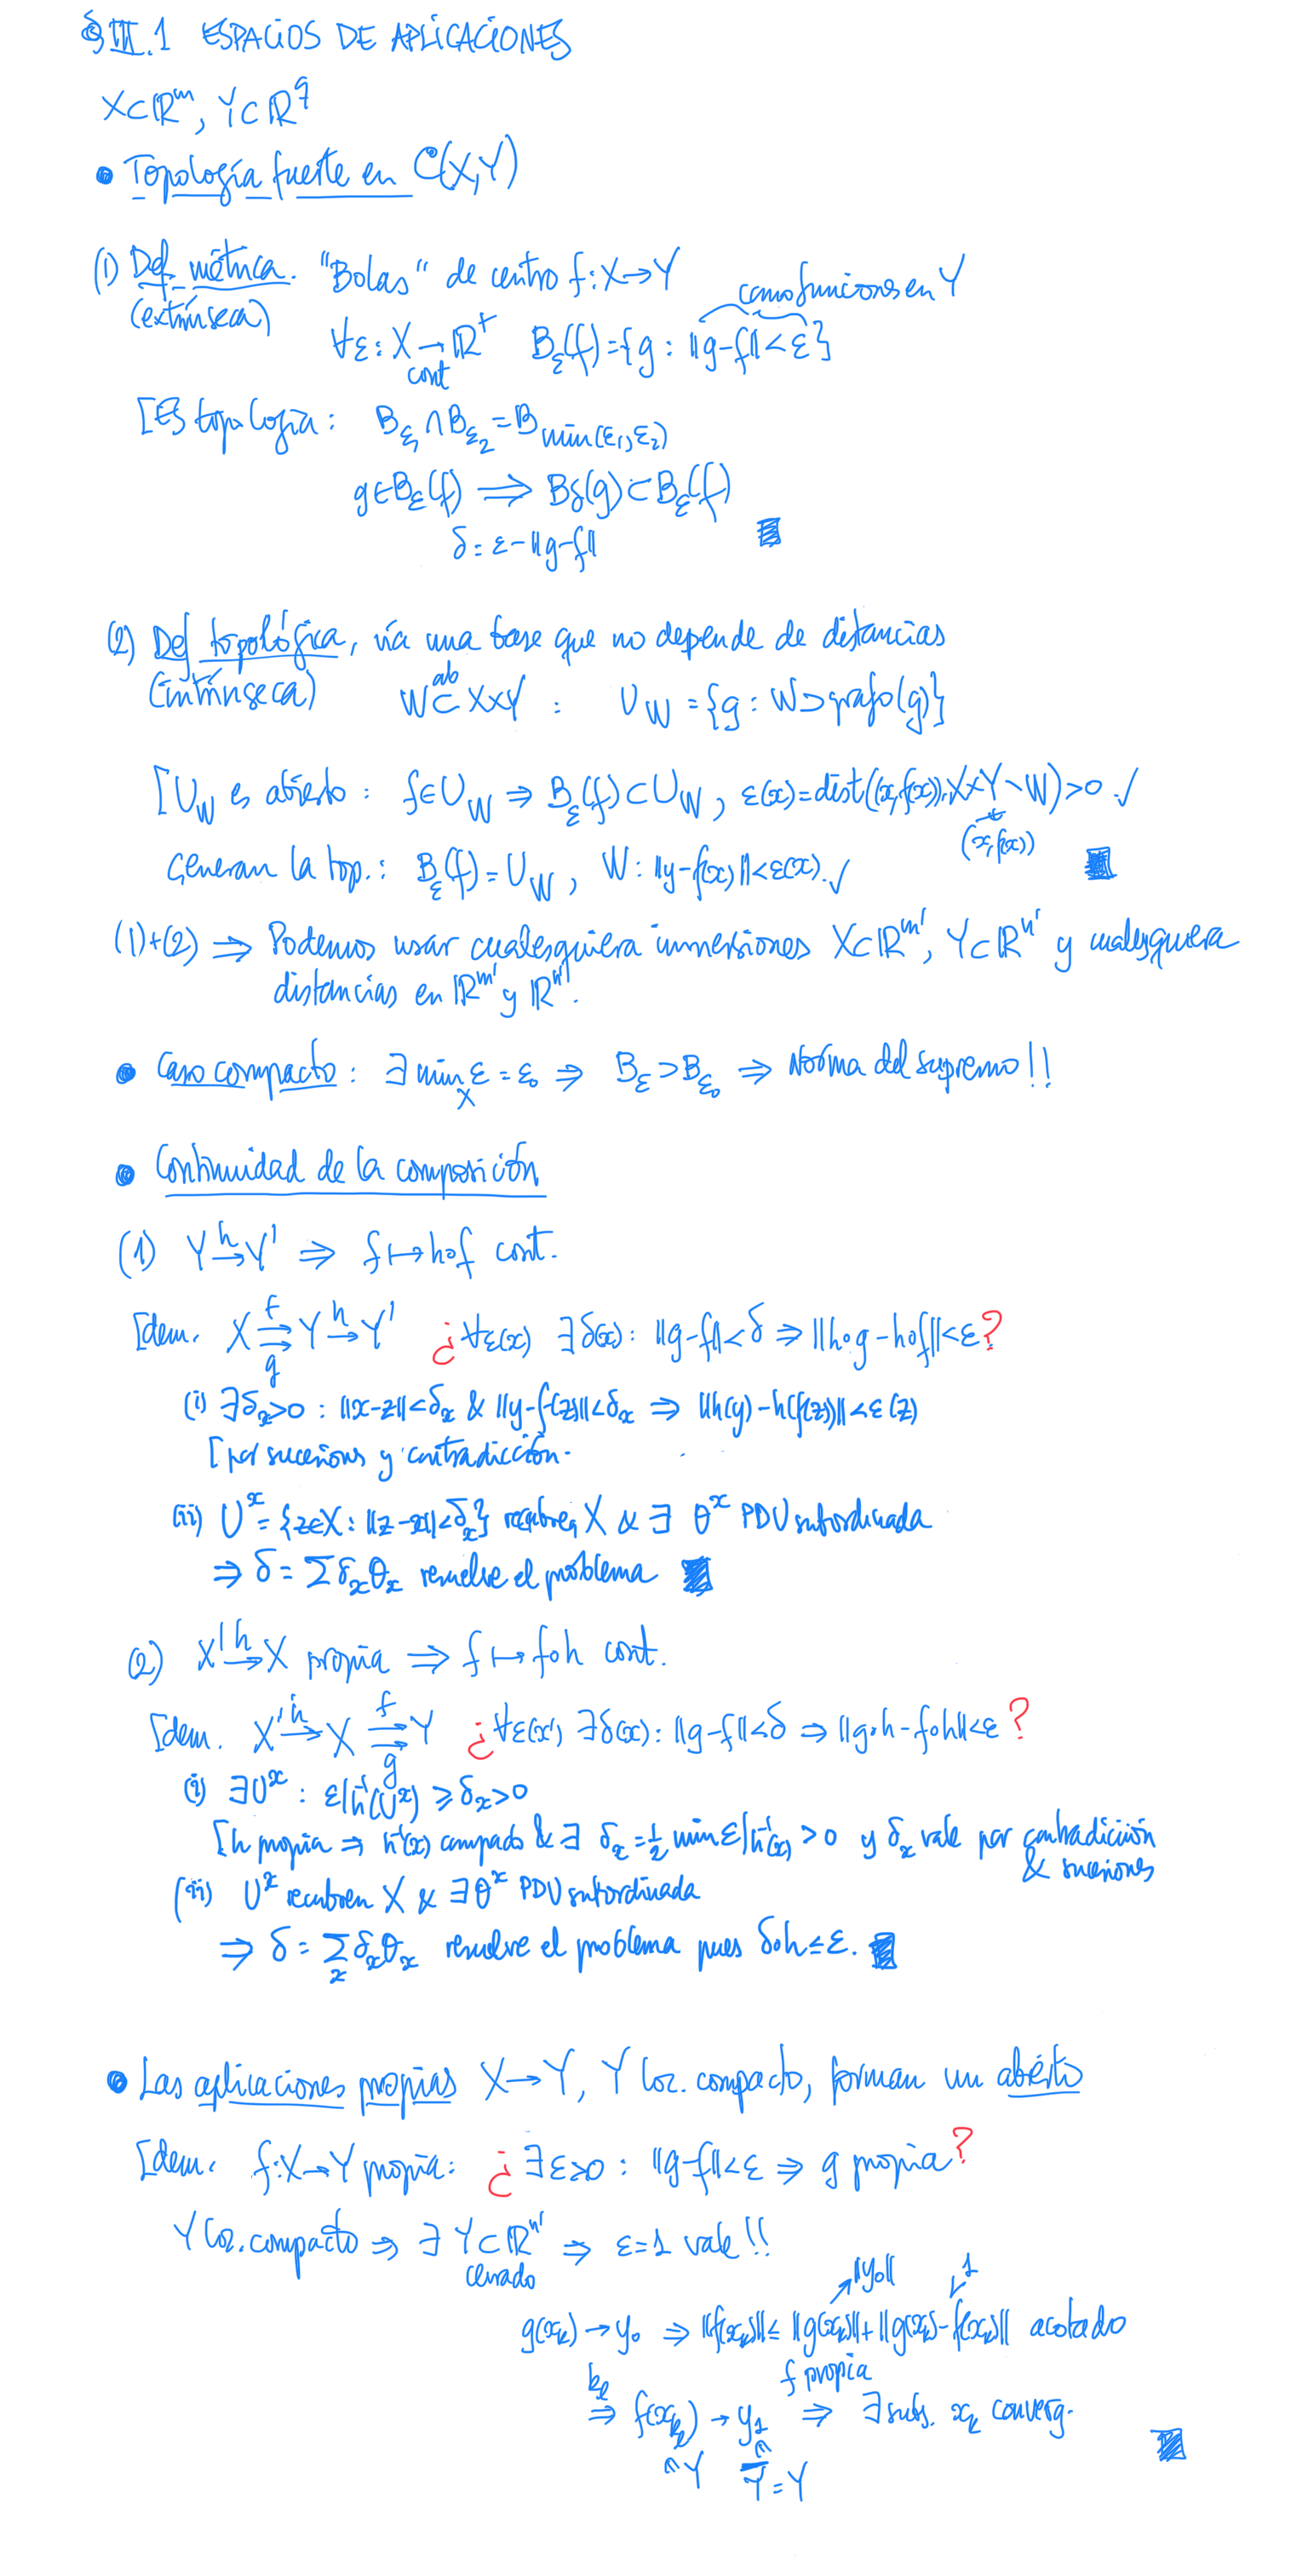 §III.1 ESPACIOS DE APLICACIONES
X⊂ℝᵐ, Y⊂ℝ^q
• Topología fuerte en C⁰(X,Y)
(1) Def. métrica. "Bolas" de centro f: X→Y
(extrínseca)
como funciones en Y
∀ε: X → ℝ⁺ B_ε(f)={g : ‖g-f‖<ε}
cont
[Es topología: B_ε₁ ∩ B_ε₂ = B_min(ε₁,ε₂)
g∈B_ε(f) ⟹ B_δ(g)⊂B_ε(f)
δ = ε-‖g-f‖
(2) Def topológica, vía una base que no depende de distancias
(intrínseca) W ⊂^ab X×Y : U_W = {g : W⊃grafo(g)}
[U_W es abierto : f∈U_W ⇒ B_ε(f)⊂U_W, ε(x)=dist((x,f(x)), X×Y∖W)>0 ✓
(x,f(x))
Generan la top.: B_ε(f)=U_W, W: ‖y-f(x)‖<ε(x). ✓
(1)+(2) ⟹ Podemos usar cualesquiera inmersiones X⊂ℝ^m', Y⊂ℝ^n' y cualesquiera
distancias en ℝ^m' y ℝ^n'.
• Caso compacto : ∃ min_X ε = ε₀ ⇒ B_ε⊃B_ε₀ ⇒ Norma del supremo!!
• Continuidad de la composición
(1) Y →^h Y' ⟹ f↦h∘f cont.
[dem. X ⇉^f_g Y →^h Y' ¿∀ε(x) ∃δ(x): ‖g-f‖<δ ⇒ ‖h∘g-h∘f‖<ε?
(i) ∃δ_x>0 : ‖x-z‖<δ_x & ‖y-f(z)‖<δ_x ⇒ ‖h(y)-h(f(z))‖<ε(z)
[por sucesiones y contradicción.
(ii) U^x = {z∈X : ‖z-x‖<δ_x} recubren X & ∃ θ^x PDU subordinada
⇒ δ = Σ δ_x θ_x resuelve el problema
(2) X' →^h X propia ⟹ f↦f∘h cont.
[dem. X' →^h X ⇉^f_g Y ¿∀ε(x') ∃δ(x): ‖g-f‖<δ ⇒ ‖g∘h-f∘h‖<ε?
(i) ∃U^x : ε|h⁻¹(U^x) ≥ δ_x>0
[h propia ⇒ h⁻¹(x) compacto & ∃ δ_x = ½ min ε|h⁻¹(x) > 0 y δ_x vale por contradicción
& sucesiones
(ii) U^x recubren X & ∃θ^x PDU subordinada
⇒ δ = Σ_x δ_x θ_x resuelve el problema pues δ∘h≤ε.
• Las aplicaciones propias X→Y, Y loc. compacto, forman un abierto
[dem. f: X→Y propia: ¿∃ε>0 : ‖g-f‖<ε ⇒ g propia?
Y loc. compacto ⇒ ∃ Y⊂ℝ^n' ⇒ ε=1 vale!!
cerrado
‖y₀‖ 1
g(x_k)→y₀ ⇒ ‖f(x_k)‖≤ ‖g(x_k)‖+‖g(x_k)-f(x_k)‖ acotado
k_ℓ f propia
⇒ f(x_kℓ) → y₁ ⇒ ∃ subs. x_k converg.
∈Y ∈ Y̅=Y